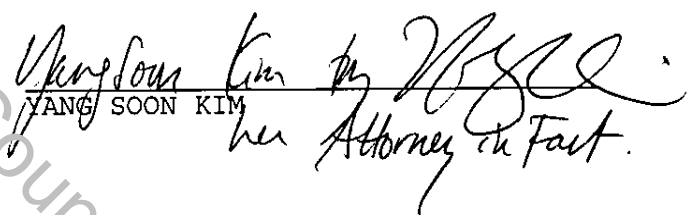 Yang Soon Kim by
YANG SOON KIM
her Attorney in Fact.
Coun